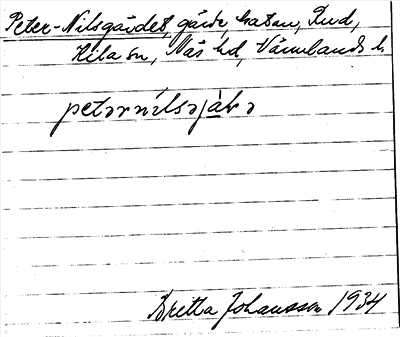 Peter-Nilsgärdet, gärde, hatan, Rud,
Kila sn, Näs hd, Värmlands l.
petərnilsəjäḷə
Britta Johansson 1934